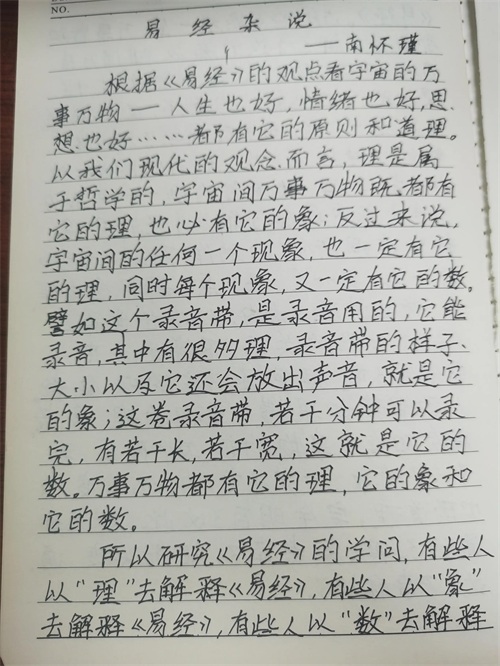 NO.
易经杂说
——南怀瑾
根据《易经》的观点看宇宙的万
事万物——人生也好，情绪也好，思
想也好……都有它的原则和道理。
从我们现代的观念而言，理是属
于哲学的，宇宙间万事万物既都有
它的理，也必有它的象；反过来说，
宇宙间的任何一个现象，也一定有它
的理，同时每个现象，又一定有它的数。
譬如这个录音带，是录音用的，它能
录音，其中有很多理，录音带的样子、
大小以及它还会放出声音，就是它
的象；这卷录音带，若干分钟可以录
完，有若干长，若干宽，这就是它的
数。万事万物都有它的理，它的象和
它的数。
所以研究《易经》的学问，有些人
以“理”去解释《易经》，有些人以“象”
去解释《易经》，有些人以“数”去解释